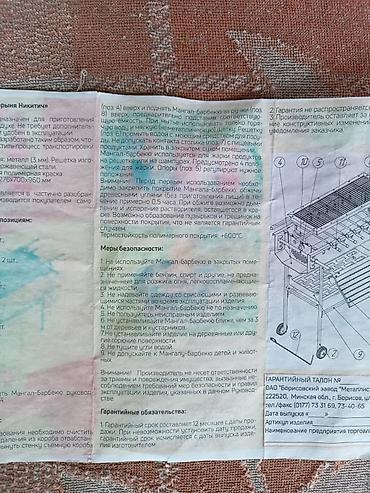 рыня Никитич»
назначен для приготовления
духе. Не требует дополнитель-
т удобен в эксплуатации
разработаны таким образом, что
ли процесс транспортировки
: металл (3 мм). Решетка изго-
ржавеющей стали.
Полимерная краска
276х700х960 мм
вляется в частично разобран-
изводится покупателем само-
позициям:
2 шт.,
ть Мангал-Барбекю руковод-
зования необходимо очистить
далении из короба отработан-
(поз. 4) вверх и поднять Мангал-Барбекю за ручки (поз.
8) вверх, предварительно подставив соответствую-
щую емкость. При мытье использовать только горя-
чую воду и мягкую безметаллическую щетку. Решетку
(поз. 6) промыть водой с моющим средством для посу-
ды. Не допускать контакта столика (поз. 7) с пищевыми
продуктами. После мытья протереть сухим мягким
Барбекю используется для жарки продуктов
на решетке или на шампурах. Предусмотрено 4 поло-
жения для жарки. Опоры (поз. 5) регулируют нижнее
положение.
Внимание! Перед первым использованием необхо-
димо закрепить покрытие. Мангал-Барбекю обжечь
древесными углями (без приготовления пищи) в те-
чение примерно 0,5 часа. При обжиге возможно дым-
ление и испарение растворителя, остаточных веще-
ств. Возможно образование пузырьков и трещинок на
поверхности покрытия, что не является гарантийным
случаем.
Термостойкость полимерного покрытия: +600°С
Меры безопасности:
1. Не используйте Мангал-Барбекю в закрытых поме-
щениях.
2. Не применяйте бензин, спирт и другие, не предназ-
наченные для розжига огня, легковоспламеняющие-
ся жидкости.
3. Не надевайте одежду со свисающими и развеваю-
щимися частями во время эксплуатации изделия.
4. Не используйте Мангал-Барбекю не по назначению
5. Не пользуйтесь неисправным изделием.
6. Не устанавливайте Мангал-Барбекю ближе, чем за 3
м от деревьев и кустарников.
7. Не устанавливайте изделие на деревянные или дру-
гие горючие поверхности.
8. Не тушите угли водой.
9. Не допускайте к Мангалу-Барбекю детей и живот-
ных.
Внимание! Производитель не несет ответственности
за травмы и повреждения имущества, вызванные не-
соблюдением требований мер безопасности и правил
эксплуатации изделия, указанных в данном Руковод-
стве.
Гарантийные обязательства:
1. Гарантийный срок составляет 12 месяцев с даты про-
дажи. При невозможности установить дату продажи,
гарантийный срок исчисляется с даты выпуска изде-
лия изготовителем
2. Гарантия не распространяется
3. Производитель оставляет за
ние конструктивных изменений
уведомления заказчика.
4 10 5 11
2 9
ГАРАНТИЙНЫЙ ТАЛОН №
ОАО "Борисовский завод "Металлис
222520, Минская обл., г. Борисов, ул
тел./факс (0177) 73 31 69, 73-40-65
Дата выпуска «
Артикул изделия
Наименование предприятия торговли